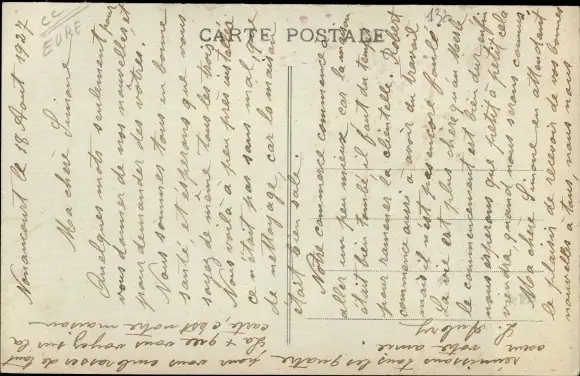 CARTE POSTALE
CC
EURE
Nonancourt le 18 Août 1927
Ma chère Simone
Quelques mots seulement pour
vous donner de nos nouvelles et
pour demander des vôtres.
Nous sommes tous en bonne
santé et espérons que vous
soyez de même tous les trois
Nous voilà à peu près installés
ce n'était pas sans mal que
de nettoyage car la maison
était bien sale.
Notre commerce commence à
aller un peu mieux car la maison
était bien tombé il faut du temps
pour remener la clientelle. Robert
commence aussi a avoir du travail
mais il n'est pas encore foulé.
La vie est plus chère qu'au Mesle
le commencement est bien dur enfin
nous espérons que petit à petit cela
viendra quand nous serons connus
Ma chère Simone en attendant
le plaisir de recevoir de vos bonnes
nouvelles à tous, nous nous
réunissons tous les quatre pour vous embrasser de tout
coeur votre amie
L. Aubry
La + que vous voyez sur la
carte, c'est notre maison